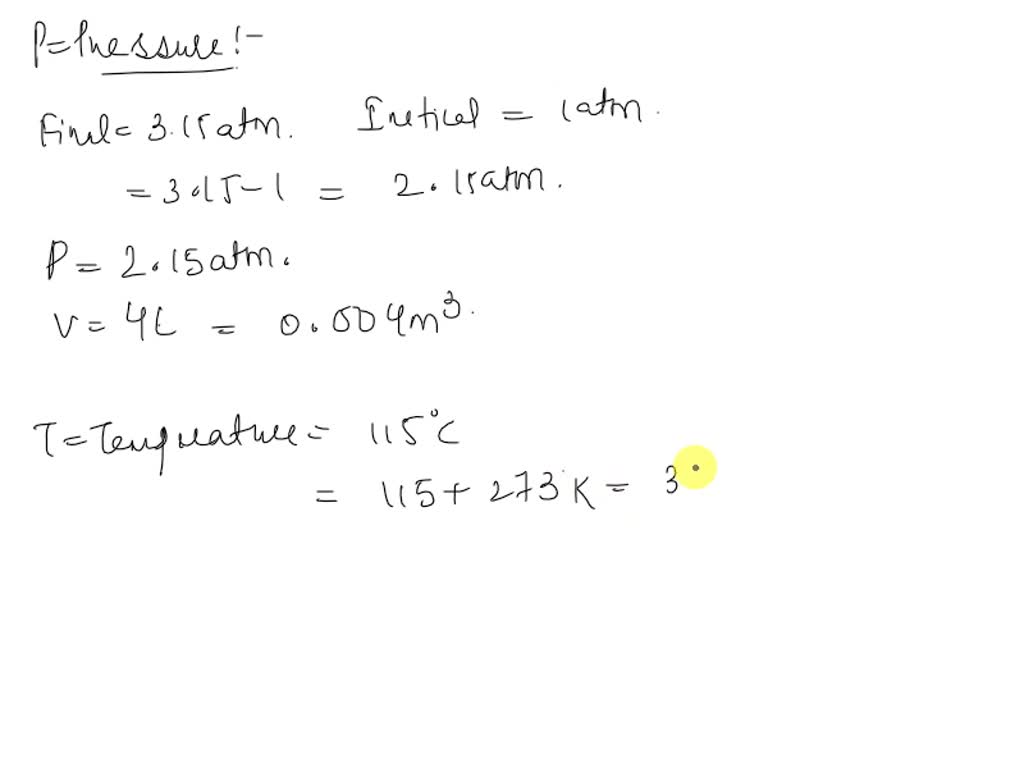 P=Pressure:-
Final= 3.15atm. Initial = 1atm.
= 3.15-1 = 2.15atm.
P= 2.15atm.
V= 4L = 0.004m³.
T=Temperature= 115°C
= 115+ 273K= 3